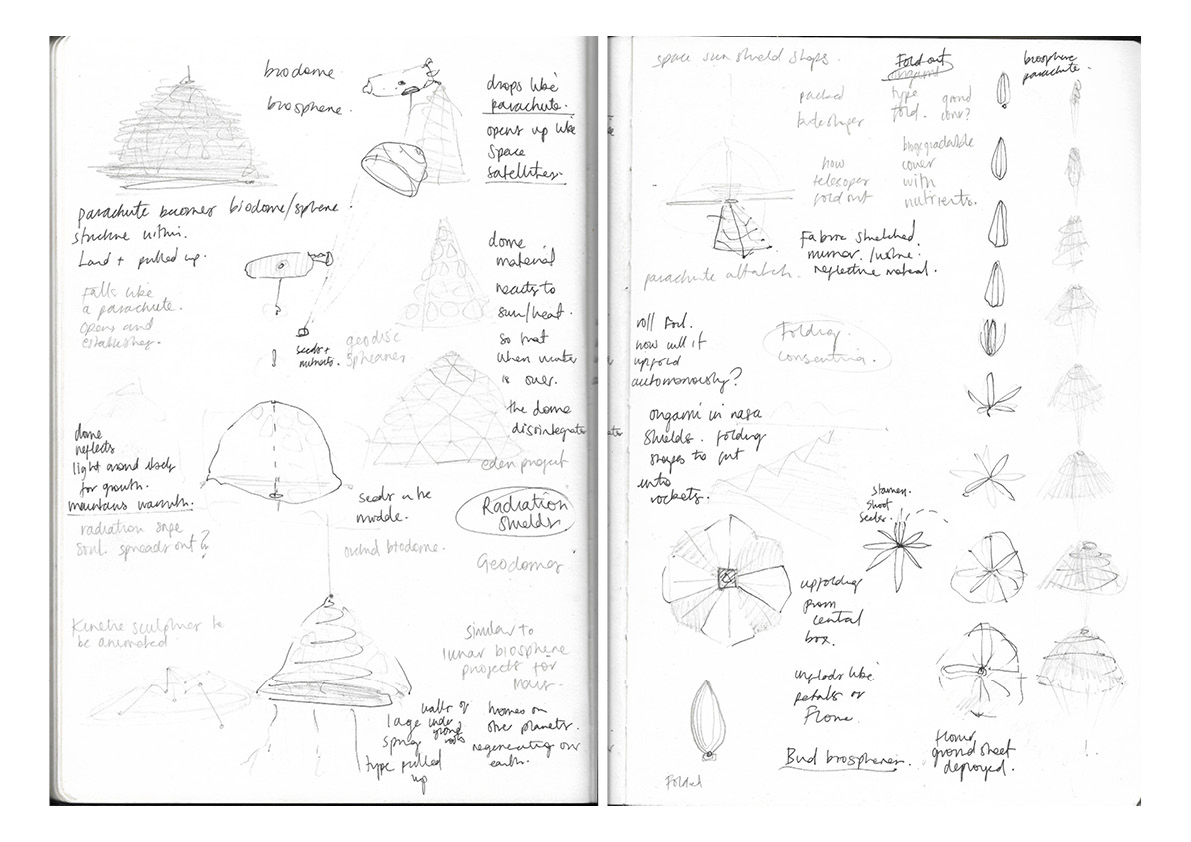 biodome
biosphere.
drops like
parachute.
opens up like
space
satellites.
parachute becomes biodome/sphere.
structure within.
Land + pulled up.
Falls like
a parachute.
opens and
establishes.
dome
material
reacts to
sun/heat.
so that
when winter
is over.
the dome
disintegrates
seeds +
nutrients.
geodisic
Spheares
eden project
dome
reflects
light around itself
for growth.
maintains warmth.
radiation
soil. spreads out?
seeds in the
middle.
around biodome.
Radiation
shields
Geodomes
Kinetic sculpture to
be animated
similar to
lunar biosphere
projects for
mars.
walls of
large
under
ground
roots
spring
type pulled
up
homes on
other planets.
regenerating our
earth.
space sun shield shops.
Fold out
origami
type
fold.
packed
ground
cover?
biosphere
parachute.
biodegradable
cover
with
nutrients.
how
telescopes
fold out
Fabric stretched.
mirror /
reflective material.
parachute attatch.
roll foil.
how will it
unfold
autonomously?
Folding
origami in nasa
shields. folding
shapes to fit
into
rockets.
stamen.
shoot
seeds.
unfolding
from
central
box.
unfolds like
petals of
Flower.
Folded
Bud biospheres.
flower
ground sheet
deployed.